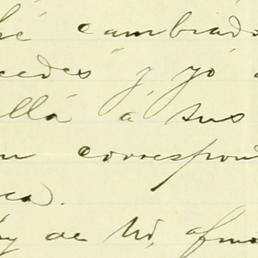 hé cambiado
cedés y yó a
allá a sus
n correspon
ea.
y de Ud, afmo